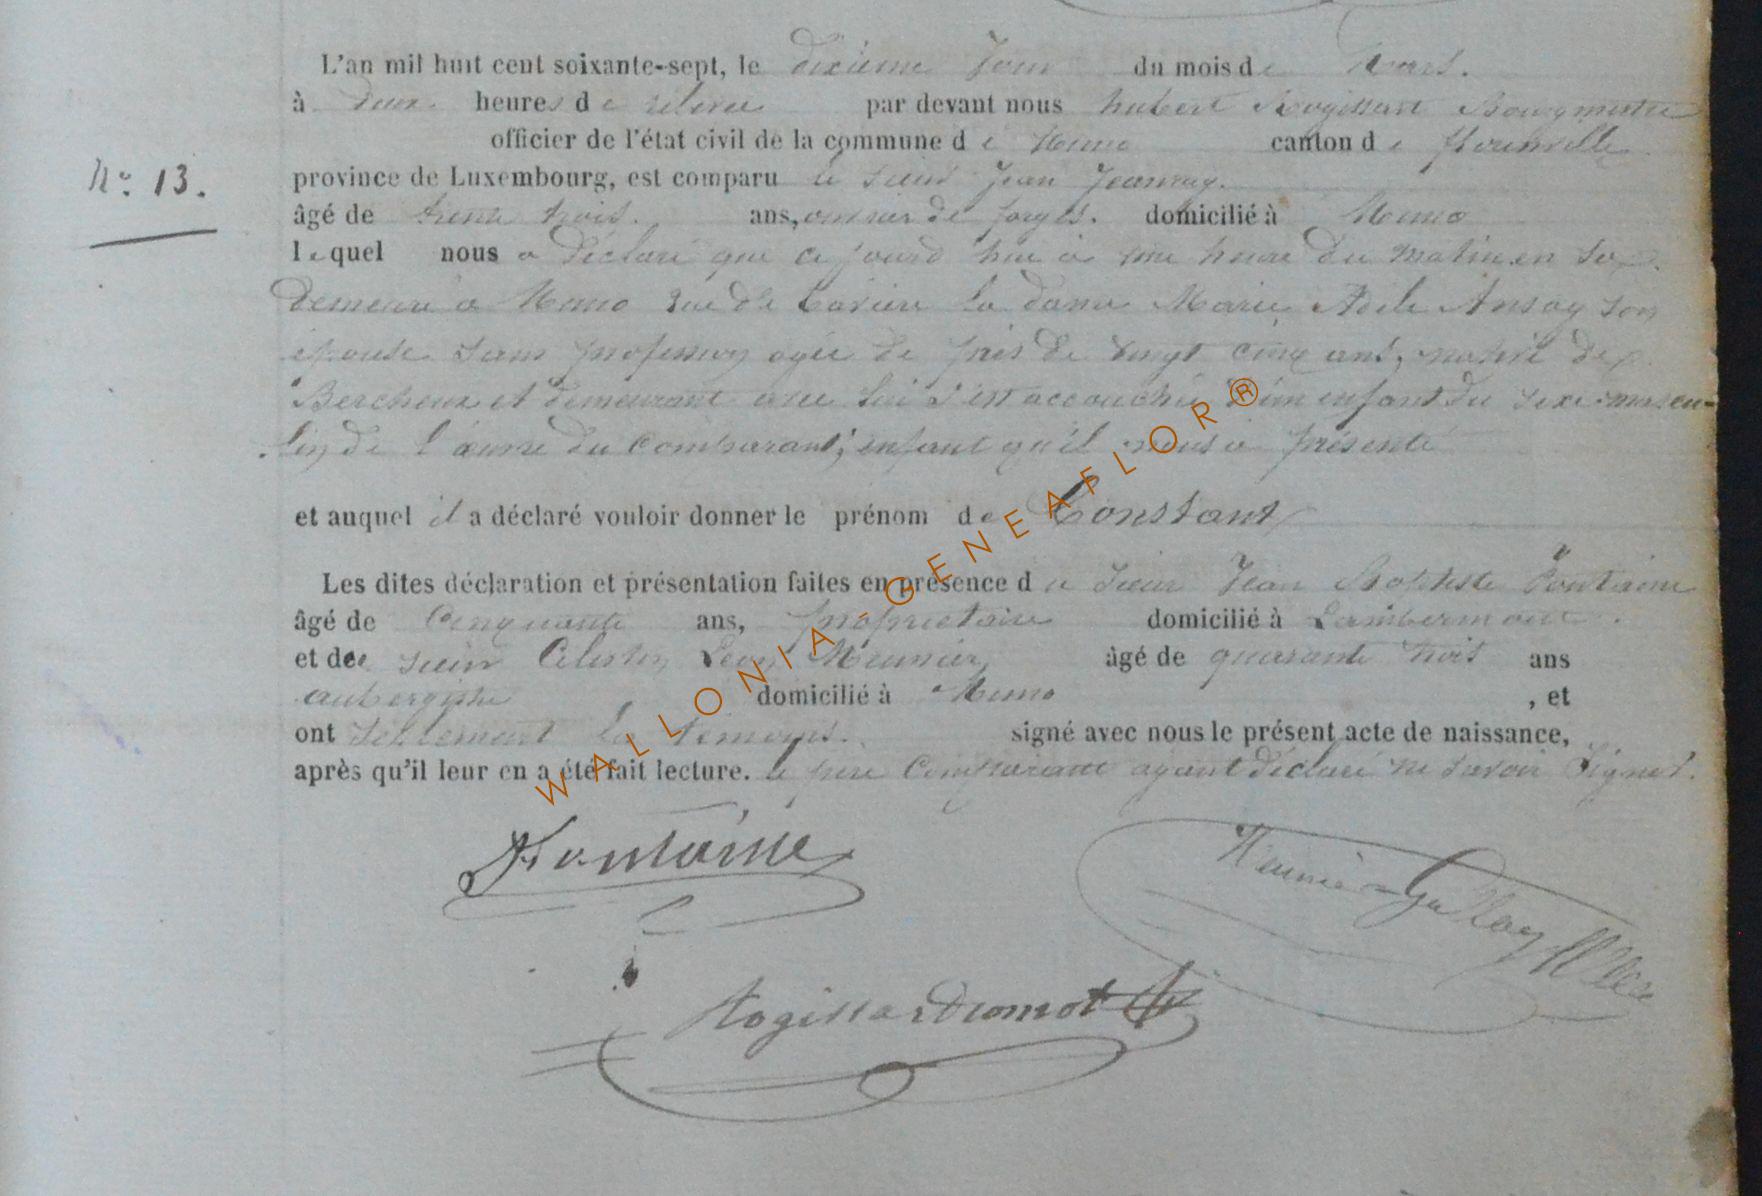 L'an mil huit cent soixante-sept, le dixième Jour du mois de Mars.
à deux heures de relevée par devant nous hubert Rogissart Bourgmestre
officier de l'état civil de la commune de Muno canton de florenville
Nº 13.
province de Luxembourg, est comparu le sieur Jean Jeanray.
âgé de trente trois. ans, ouvrier de forges. domicilié à Muno
lequel nous a déclaré que ce jourd hui à une heure du matin en sa
demeure à Muno rue de la dame Marie Adèle Ansay son
épouse sans profession agée de près de vingt cinq ans, native de
Bercheux et demeurant avec lui s'est accouchée d'un enfant du sexe mascu-
lin de l'œuvre du comparant; enfant qu'il nous a présenté
et auquel il a déclaré vouloir donner le prénom de Constant
Les dites déclaration et présentation faites en présence du sieur Jean Baptiste Fontaine
âgé de Cinquante ans, propriétaire domicilié à Lambermont.
et de sieur Célestin Léon Meunier âgé de quarante trois ans
aubergiste domicilié à Muno , et
ont seulement les témoins. signé avec nous le présent acte de naissance,
après qu'il leur en a été fait lecture. le père Comparant ayant déclaré ne savoir Signer.
Fontaine
Meunier
WALLONIA-GENEAFLOR®